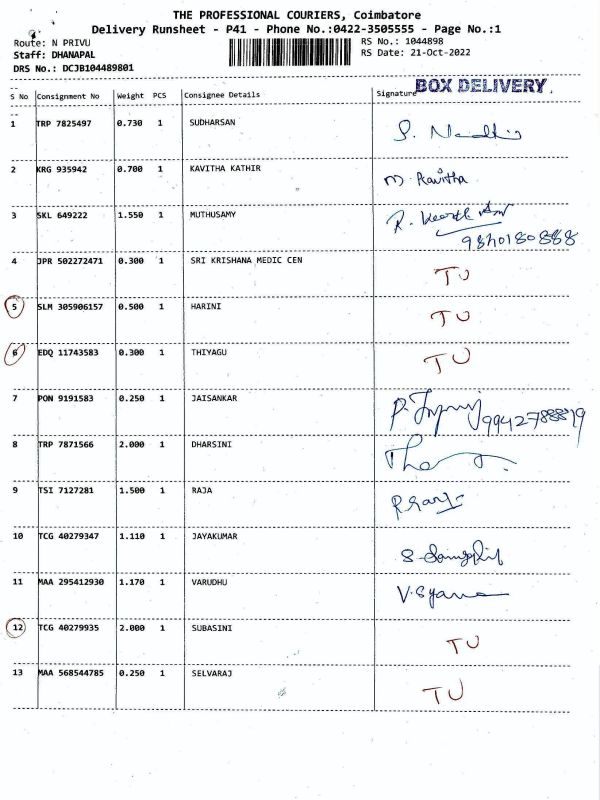 THE PROFESSIONAL COURIERS, Coimbatore
Delivery Runsheet - P41 - Phone No.:0422-3505555 - Page No.:1
Route: N PRIVU RS No.: 1044898
Staff: DHANAPAL RS Date: 21-Oct-2022
DRS No.: DCJB104489801
BOX DELIVERY.
S No Consignment No Weight PCS Consignee Details Signature
1 TRP 7825497 0.730 1 SUDHARSAN
2 KRG 935942 0.700 1 KAVITHA KATHIR M. Kavitha
3 SKL 649222 1.550 1 MUTHUSAMY
9870180888
4 JPR 502272471 0.300 1 SRI KRISHANA MEDIC CEN TU
5 SLM 305906157 0.500 1 HARINI TU
6 EDQ 11743583 0.300 1 THIYAGU TU
7 PON 9191583 0.250 1 JAISANKAR
8 TRP 7871566 2.000 1 DHARSINI
9 TSI 7127281 1.500 1 RAJA
10 TCG 40279347 1.110 1 JAYAKUMAR
11 MAA 295412930 1.170 1 VARUDHU
12 TCG 40279935 2.000 1 SUBASINI TU
13 MAA 568544785 0.250 1 SELVARAJ TU